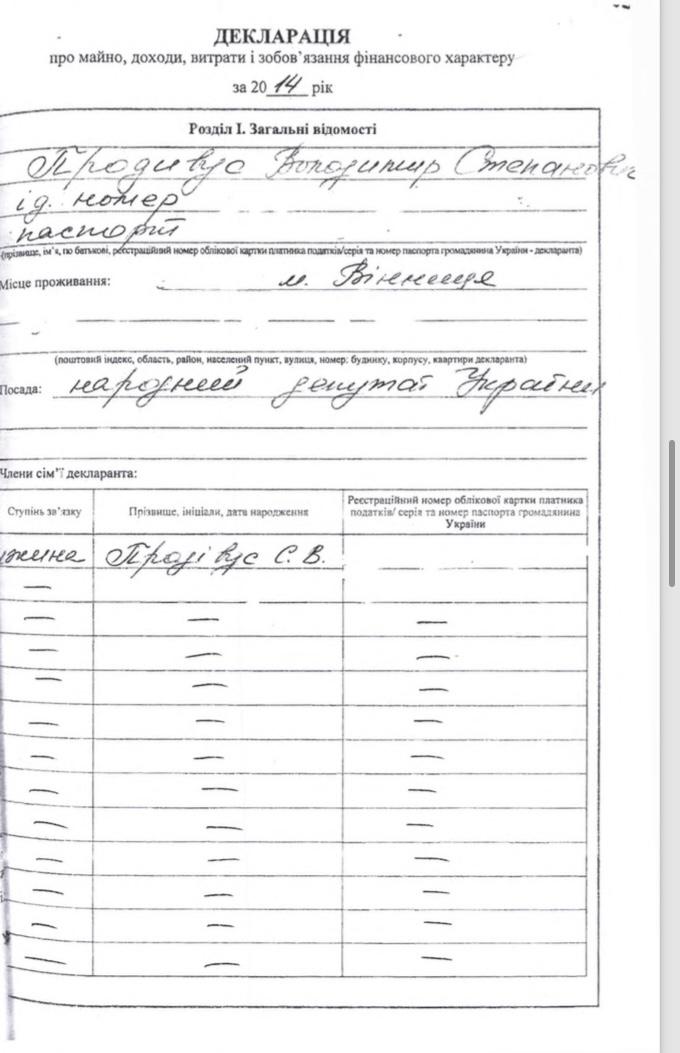 ДЕКЛАРАЦІЯ
про майно, доходи, витрати і зобов’язання фінансового характеру
за 2014 рік
Розділ I. Загальні відомості
Продивус Володимир Степанович
ід. номер
паспорт
(прізвище, ім’я, по батькові, реєстраційний номер облікової картки платника податків/серія та номер паспорта громадянина України - декларанта)
Місце проживання: м. Вінниця
(поштовий індекс, область, район, населений пункт, вулиця, номер: будинку, корпусу, квартири декларанта)
Посада: народний депутат України
Члени сім’ї декларанта:
Ступінь зв’язку Прізвище, ініціали, дата народження Реєстраційний номер облікової картки платника
податків/ серія та номер паспорта громадянина
України
жина Продівус С. В.